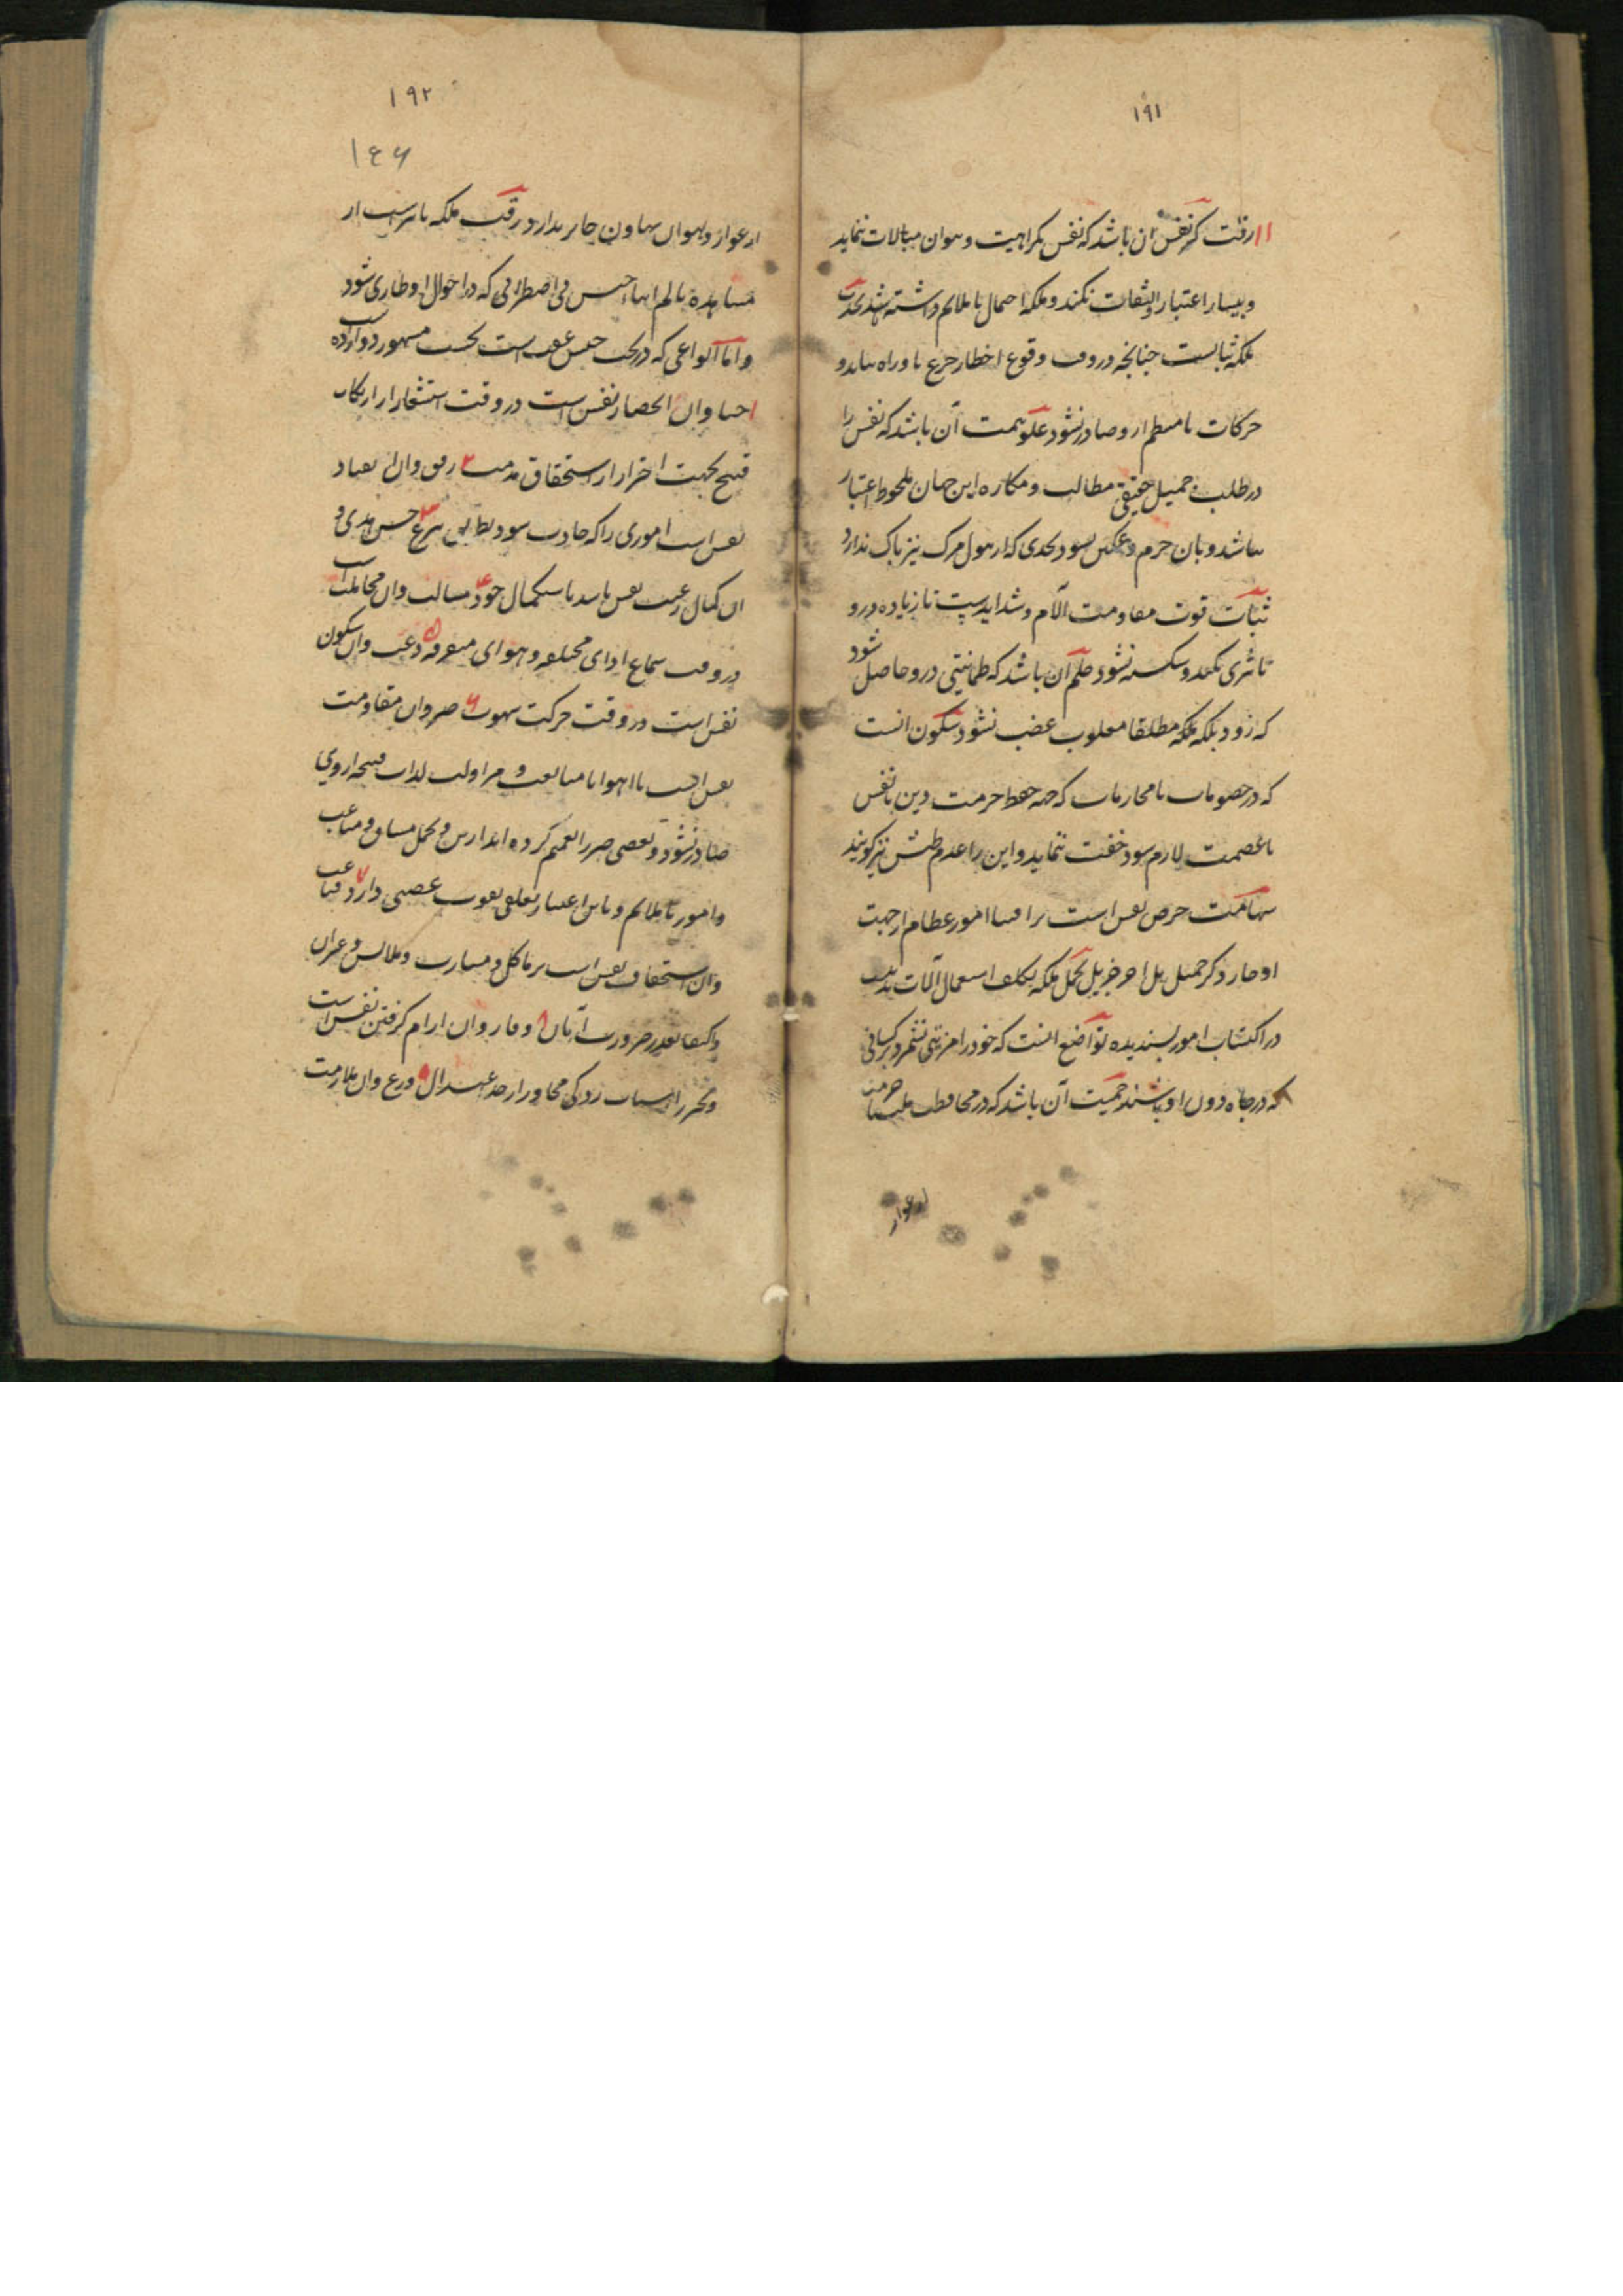 ۱۹۱
۱۱ رقت کبر نفس آن باشد که نفس بکرامت و هوان مبالات ننماید
و بیسار اعتبار و التفات نکند و بلکه احتمال ناملایم داشته باشد نجدت
بلکه ثباتست چنانچه در وقت وقوع اخطار جزع باو راه نیابد و
حرکات نامنتظم از و صادر نشود علو همت آن باشد که نفس را
در طلب جمیل حقیقی مطالب و مکاره این جهان ملحوظ اعتبار
نباشد و بان خرم و غمگین نشود بحدی که از هول مرک نیز باک ندارد
ثبات قوت مقاومت آلام و شدایدست تا زیاده درو
تاثری نکند و شکسته نشود حلم آن باشد که طمانیتی درو حاصل شود
که زود بلکه بلکه مطلقا مغلوب غضب نشود سکون انست
که در خصومات یا محاربات که جهه حفظ حرمت دین یا نفس
یا عصمت لازم شود خفت ننماید و این را عدم طیش نیز کویند
شهامت حرص نفس است بر اقتنا امور عظام از جهت
ادخار ذکر جمیل بل اجر جزیل تحمل ملکه تکلف استعمال آلات بدنیست
در اکتساب امور پسندیده تواضع انست که خود را مزیتی نشمرد بر کسانی
که در جاه دون او باشند حمیت آن باشد که در محافظت ملت یا حرمت
از عوار
۱۹۲
۱۴۶
از عوار و هوان تهاون جایز ندارد رقت ملکه تاثرست از
مشاهده تالم ابناء جنس بی اضطرابی که در احوال او طاری شود
و اما انواعی که در تحت جنس عفت است بحسب مشهور دوازده است
۱ حیا و ان انحصار نفس است در وقت استشعار از ارتکاب
قبیح بجهت احتراز از استحقاق مذمت ۲ رفق و ان انقیاد
نفس است اموری را که حادث شود بطریق تبرع ۳ حسن هدی و
ان کمال رغبت نفس باشد باستکمال خود ۴ مسالمت و ان مجاملت است
در وقت سماع ارای مختلفه و هوای متفرقه ۵ دعت و ان سکون
نفس است در وقت حرکت شهوت ۶ صبر و ان مقاومت
نفس است با اهوا تا متابعت و مزاولت لذات قبیحه از وی
صادر نشود و بعضی صبر را تعمیم کرده اند از این و تحمل مشاق و متاعب
و امور ناملایم و باین اعتبار تعلق بقوت غضبی دارد ۷ قناعت
و ان استخفاف نفس است بر ماکل و مشارب و ملابس و غیران
و اکتفا بقدر ضرورت از ان ۸ وقار و ان ارام کرفتن نفس است
و تحرز از شتاب زدکی مجاوز از حد اعتدال ۹ ورع و ان ملازمت